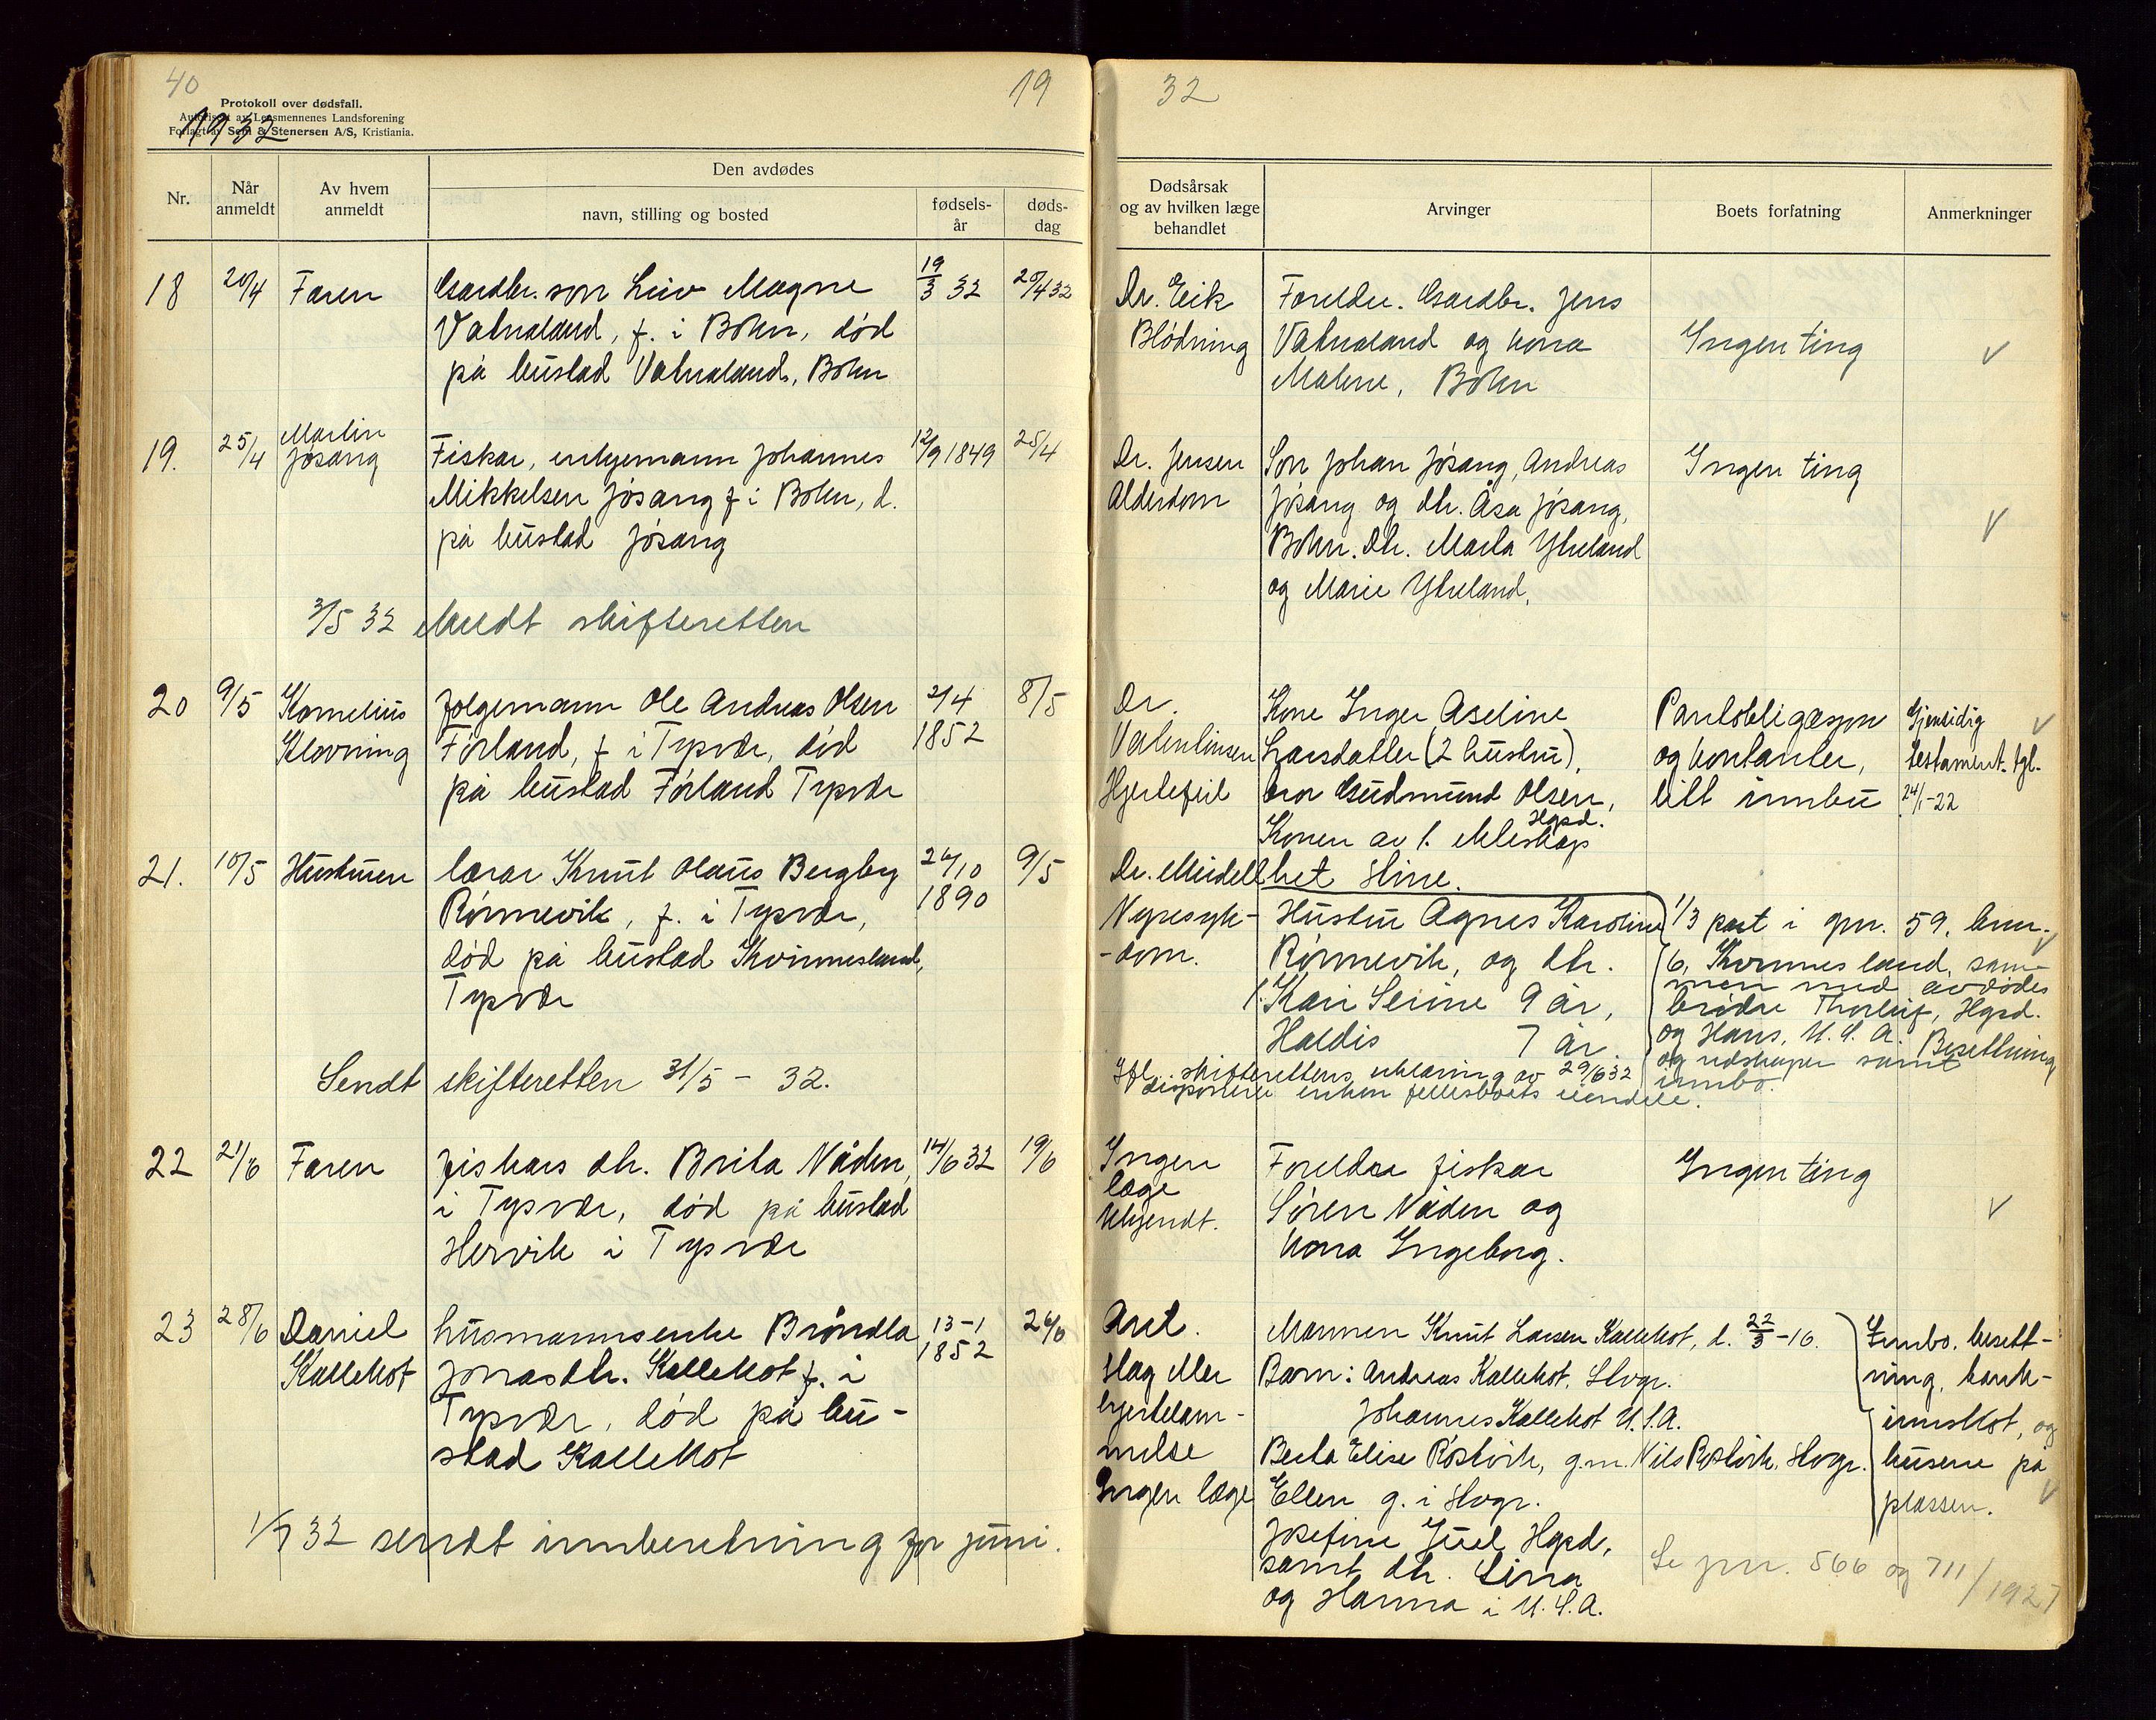 40
19
32
Protokoll over dødsfall.
Autorisert av Lensmennenes Landsforening
Forlagt av Sem & Stenersen A/S, Kristiania.
1932
Nr.
Når anmeldt
Av hvem anmeldt
Den avdødes
navn, stilling og bosted
fødsels-år
døds-dag
Dødsårsak
og av hvilken læge
behandlet
Arvinger
Boets forfatning
Anmerkninger
18 20/4 Faren Gardbr. son Leiv Magne 19/3 32 20/4 32
Vatnaland, f. i Bokn, død
på bustad Vatnaland, Bokn
Dr. Eeik
Blödning
Foreldre. Gardbr. Jens
Vatnaland og kona
Malene, Bokn
Ingen ting
19. 25/4 Martin
Jøsang
Fiskar, enkjemann Johannes 12/9 1849 25/4
Mikkelsen Jøsang f i Bokn, d.
på bustad Jøsang
Dr. Jensen
Alderdom
Son Johan Jøsang, Andreas
Jøsang og dtr. Åsa Jøsang,
Bokn. Dtr. Marta Ytreland
og Marie Ytreland.
Ingen ting
3/5 32 meldt skifteretten
20 9/5 Kornelius
Klovning
folgemann Ole Andreas Olsen 2/4 8/5
Førland, f i Tysvær, død 1852
på bustad Førland Tysvær
Dr.
Valentinsen
Hjertefeil
Kone Inger Aseline
Larsdatter (2 hustru),
bror Gudmund Olsen,
Hgsd.
Konen av 1. ekteskap
het Stine.
Pantobligasjon
og kontanter,
litt innbu
Gjensidig
testament. tgl.
24/1-22
21. 10/5 Hustruen lærar Knut Olaus Bergby 26/10 9/5
Rønnevik, f. i Tysvær, 1890
død på bustad Kvinnesland,
Tysvær
Dr. Meidell
Nyresyk-
-dom.
Hustru Agnes Karoline
Rønnevik, og dtr.
1. Kari Serine 9 år,
Haldis 7 år.
1/3 part i gnr. 59, bnr.
6, Kvinnesland, sam-
men med avdødes
brødre Thorleif, Hgsd.
og Hans, U.S.A. Besetning
og redskaper samt
innbo.
Sendt skifteretten 31/5 - 32.
Ifl. skifterettens erklæring av 29/6 32
disponerer enken fellesboets eiendele.
22 21/6 Faren fiskars dtr. Brita Nåden, 14/6 32 19/6
i Tysvær, død på bustad
Hervik i Tysvær
Ingen
læge
Ukjendt.
Foreldra fiskar
Søren Nåden og
kona Ingeborg.
Ingen ting
23 28/6 Daniel
Kallekot
husmannsenke Brøndla 13-1 26/6
Jonasdtr. Kallekot f. i 1852
Tysvær, død på bu-
stad Kallekot
Ant.
slag eller
hjertelam-
melse
Ingen læge
Mannen Knut Larsen Kallekot, d. 22/3 -16.
Barn: Andreas Kallekot, Stvgr.
Johannes Kallekot U.S.A.
Berta Elise Røstvik, g.m. Nils Røstvik, Stvgr.
Ellen g. i Stvgr.
Josefine Juel Hgsd,
samt dtr. Sina
og Hanna i U.S.A.
Innbo, besett-
ning, bank-
innskot, og
husene på
plassen.
1/7 32 sendt innberetning for juni.
Se jnr. 566 og 711/1927